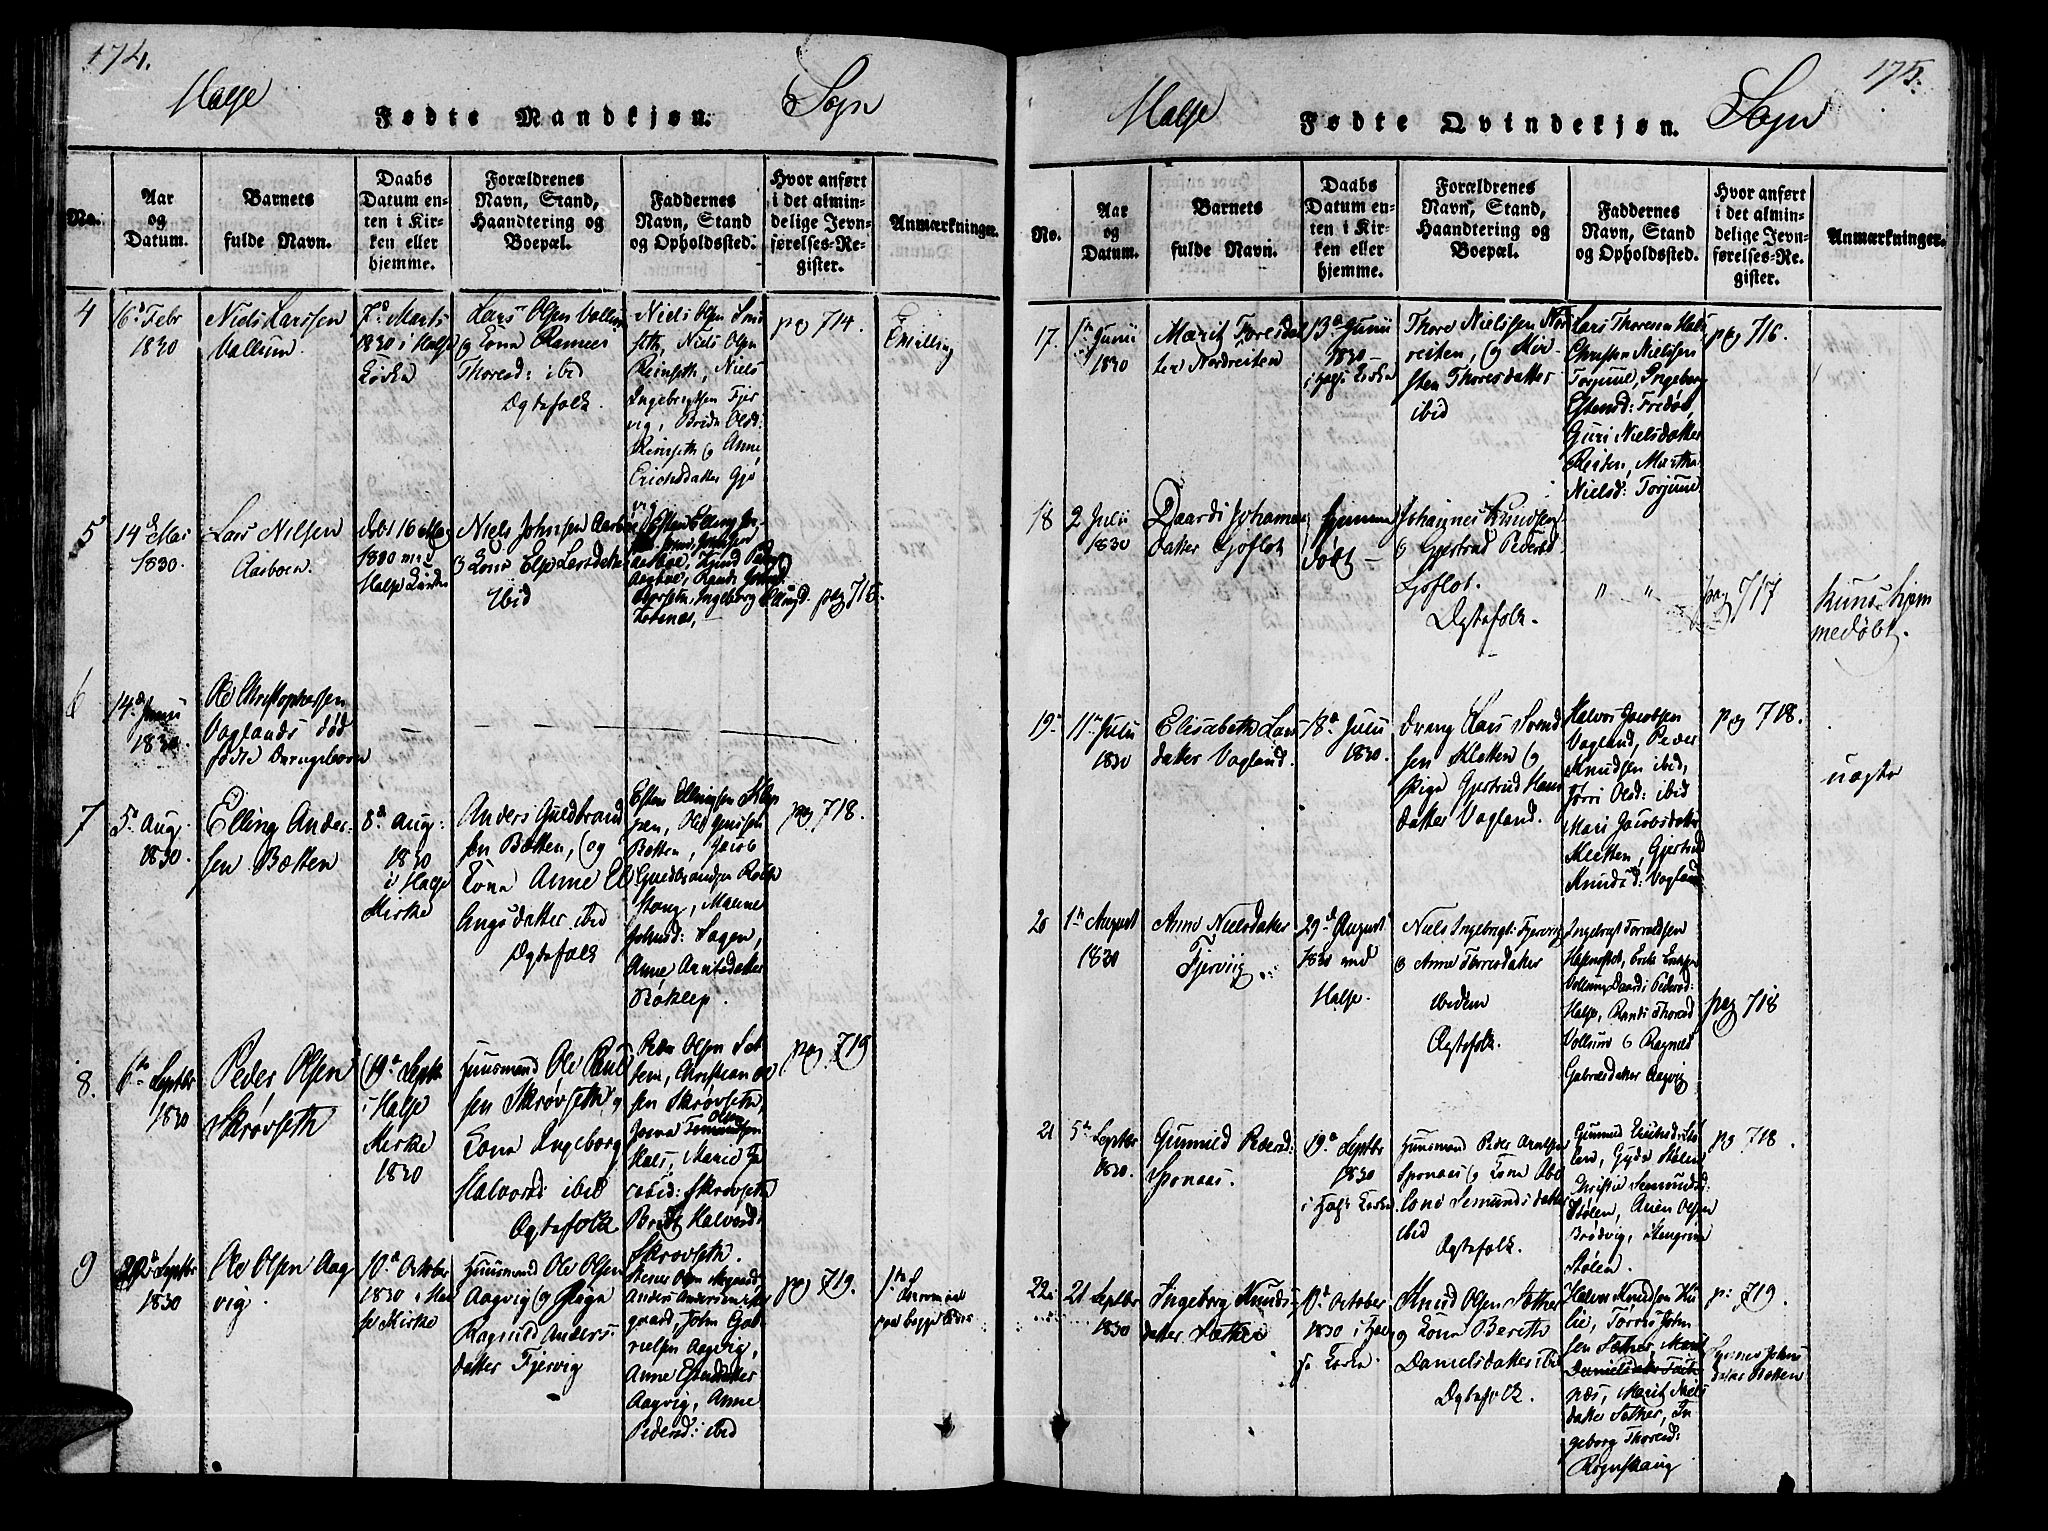 174.
Halse
Fødte Mandkjøn.
Sogn
No.
Aar
og
Datum.
Barnets
fulde Navn.
Daabs
Datum en-
ten i Kir-
ken eller
hjemme.
Forældrenes
Navn, Stand,
Haandtering og
Boepæl.
Faddernes
Navn, Stand
og Opholdssted.
Hvor anført
i det almin-
delige Jevn-
førelses-Re-
gister.
Anmærkninger.
4
16d Febr
1830
Niels Larssen
Vallum.
7d Marts
1830 i Halse
Kirke
Lars Olsen Vallum
og Kona
Thoresd: ibid
Ægtefolk.
Niels Olsen
Niels Olsen
Reinseth, Niels
Ingebrigtsen Fjer
vig, Olsd:
Reinseth og Anne
Erichsdatter
pag 714.
Tvilling
5
14d Mai
1830.
Lars Nilsen
Aasboen.
døbt 16 Mai
1830 med
Halse Kirke
Niels Johnsen
& Kona Else Larsdatter
Ibid
Ingeborg
pag 715.
6
14d Junii
1830.
Ole Christophersen
Vaglands død
fødte Drengebarn
7
5d Aug.
1830.
Elling Ander-
sen Bøtten
8d Aug:
1830
i Halse
Kirke
Anders Guldbrand
sen Bøtten, og
Kona Anne El
lingsdatter ibid
Ægtefolk
Esten Ellingsen
Ole
Bøtten, Jacob
Guldbrandsen
Johnsd: Sagen,
Anne Arntsdatter
pag 718.
8.
6te Septbr
1830
Peder Olsen
Skrøvseth
19d Septbr
i Halse
Kirke
1830
Huusmand Ole
sen Skrøvseth og
Kona Ingeborg
Halvorsd: ibid
Ægtefolk
Peder Olsen
Christian
sen Skrøvseth,
Olsen
Hals, Marit
Skrøvseth
Halvorsd:
Skrøvseth.
pag. 719
9
Septbr
1830
Ole Olsen Aag
vig.
10d October
1830 i Hal
se Kirke
Huusmand Ole Olsen
Aagvig og
Ragnild Anders-
datter Fjervig
Anders Andersen
John Gab
rielsen Aagvig,
Anne Estensdatter
Aagvig, Anne
Pedersd: ibid
pag 719.
paa begge
175.
Halse
Fødte Qvindekjøn.
Sogn
No.
Aar
og
Datum.
Barnets
fulde Navn.
Daabs
Datum en-
ten i Kir-
ken eller
hjemme.
Forældrenes
Navn, Stand,
Haandtering og
Boepæl.
Faddernes
Navn, Stand
og Opholdssted.
Hvor anført
i det almin-
delige Jevn-
førelses-Re-
gister.
Anmærkninger.
17.
Junii
1830
Marit Thoresdat
ter Nordreiten
13d Junii
1830
i Halse Kirke
Thore Nielssen Nord
reiten, og Kir-
sten Thoresdatter
ibid
Lars Thoresen
Christen Nielssen
Torjuul, Ingeborg
Estensd: Fredøe,
Guri Nielsdatter
Reiten, Martha
Nielsd: Torjuul
pag 716.
18
2 Julii
1830
Baardi Johannes
datter Gjøflot
hjemme
døbt
Johannes Knudsen
& Gjertrud Pedersd
Gjøflot.
Ægtefolk.
" — "
pag 717
Kuns hjem
medøbt.
19
11te Julii
1830
Elisabeth Lars
datter Vagland.
18d Julii
1830.
Dreng Lars Svend
sen Kletten og
Pige Gjertrud Hans
datter Vagland.
Halvor Jacobsen
Vagland, Peder
Knudsen ibid,
Olsd: ibid
Mari Jacobsdatter
Kletten, Gjertrud
Knudsd: Vagland
pag 718.
uægte
20
1te August
1830
Anne Nielsdatter
Fjervig.
29d August
1830 ved
Halse.
Niels Ingebrigts: Fjervig
& Anne Torresdatter
ibidem
Ægtefolk.
Ingebrigt Torvaldsen
Baardi Pedersd:
Halse, Randi Thoresd
Vollum & Ragnild
Gabrielsdatter Aagvig
pag 718
21
5d Septbr
1830.
Gunnild Pedersd:
Sponaas.
19d Septbr
1830
i Halse Kirke
Huusmand Peder Arntsen
Sponaas og Kona Abe
lone Semundsdatter
ibid
Ægtefolk.
Gunnild Erichsd: Stø
len, Gyda Stølen
Christie Semundsd:
Stølen, Arien Olsen
Brødvig,
Stølen.
pag 718.
22
21 Septbr
1830
Ingeborg Knuds-
datter Sæther
10d October
1830 i Hal
se Kirke.
Knud Olsen Sæther
og Kona Bereth
Danielsdatter ibid
Ægtefolk.
Halvor Knudsen
lie, Torris John
sen Sæther, Marit
næs, Marit Niels
datter Sæther, In
geborg Thoresd:
Rognskaug
p: 719.
Johns
datter Bøtten